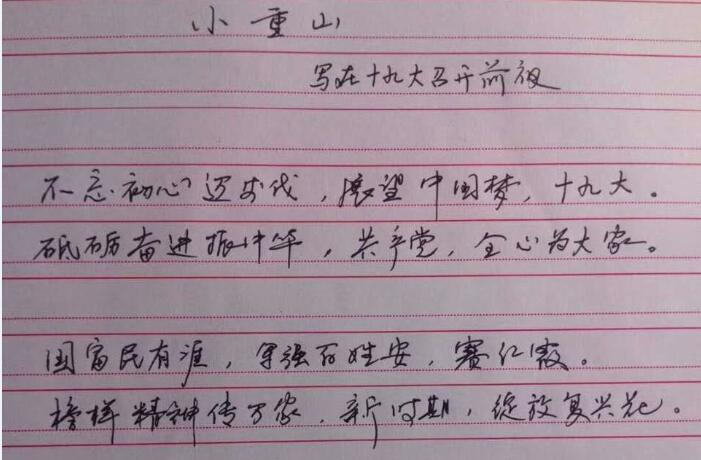 小重山
写在十九大召开前夜
不忘初心迈步伐，展望中国梦，十九大。
砥砺奋进振中华，共产党，全心为大家。
国富民有涯，军强百姓安，赛红霞。
榜样精神传万家，新时期，绽放复兴花。